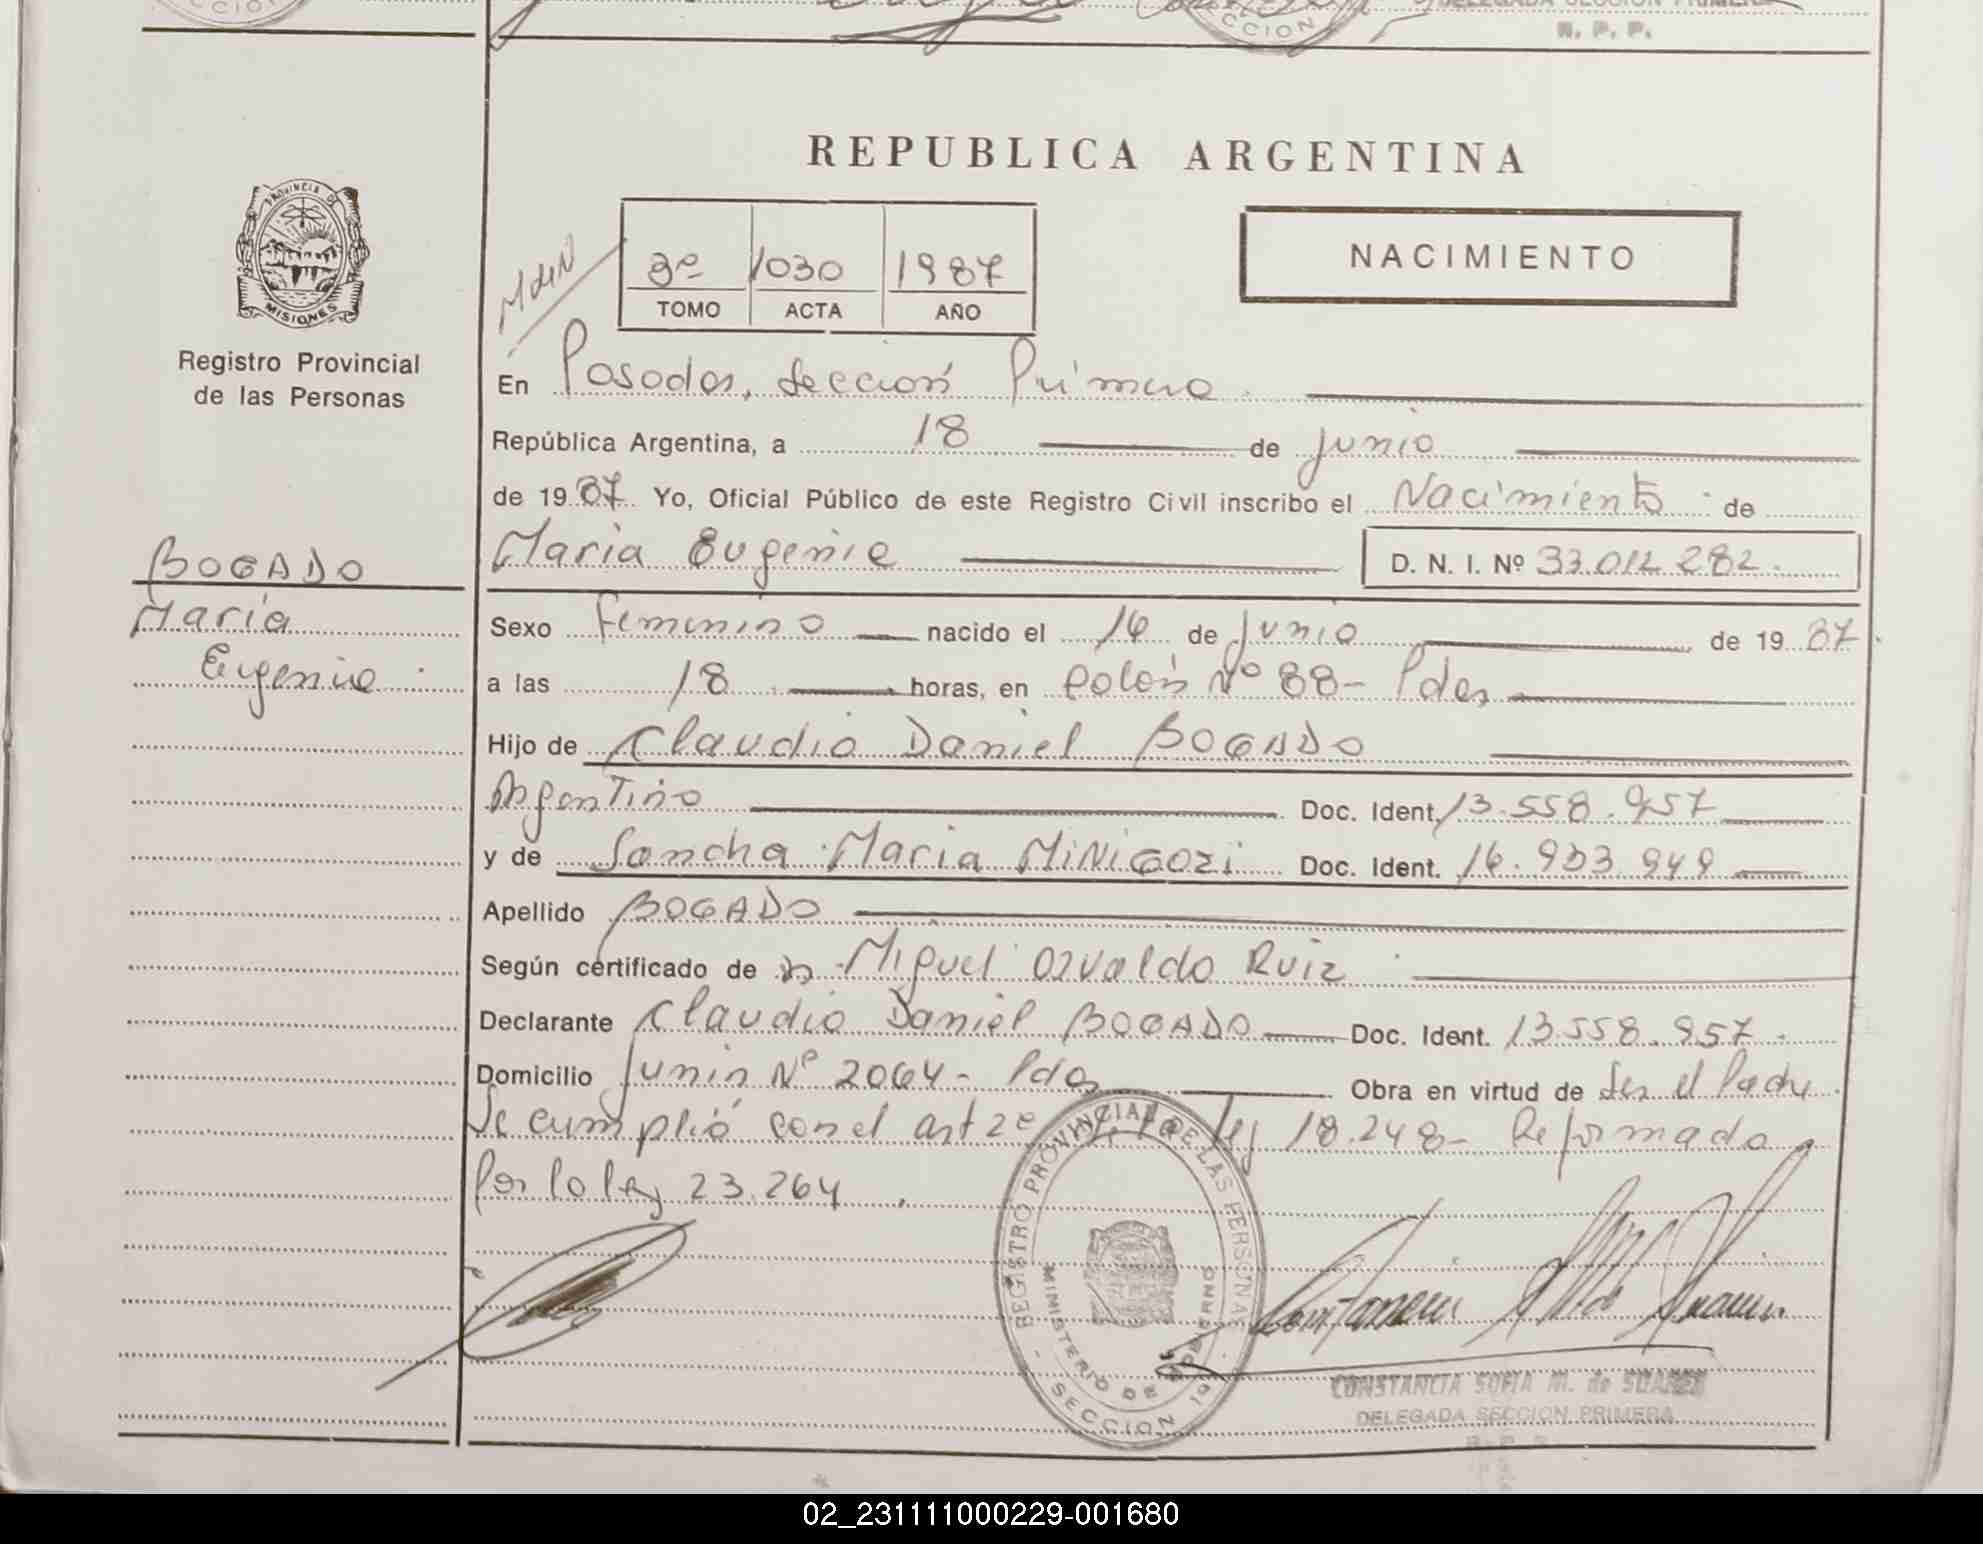 SECCION
DELEGADA SECCION PRIMERA
R. P. P.
REPUBLICA ARGENTINA
PROVINCIA DE
MISIONES
Registro Provincial
de las Personas
3º 1030 1987
TOMO ACTA AÑO
NACIMIENTO
En Posadas, Sección Primera
República Argentina, a 18 de junio
de 1987 Yo, Oficial Público de este Registro Civil inscribo el Nacimiento de
BOGADO
María Eugenia D. N. I. Nº 33.012.282.
María
Eugenia
Sexo Femenino nacido el 16 de Junio de 1987
a las 18 horas, en Colón Nº 88- Pdas
Hijo de Claudio Daniel BOGADO
Argentino Doc. Ident. 13.558.957
y de Maria MiNiGOZi Doc. Ident. 16.903.949
Apellido BOGADO
Según certificado de Miguel Osvaldo Ruiz
Declarante Claudio Daniel BOGADO Doc. Ident. 13.558.957.
Domicilio Junín Nº 2064- Pdas Obra en virtud de Ser el Padre
Se cumplió con el art 2º de la ley 18.248- Reformado
Por la ley 23.264.
REGISTRO PROVINCIAL DE LAS PERSONAS
MINISTERIO DE GOBIERNO
SECCION 1ª
CONSTANCIA SOFIA M. de SUAREZ
DELEGADA SECCION PRIMERA
R. P. P.
02_231111000229-001680